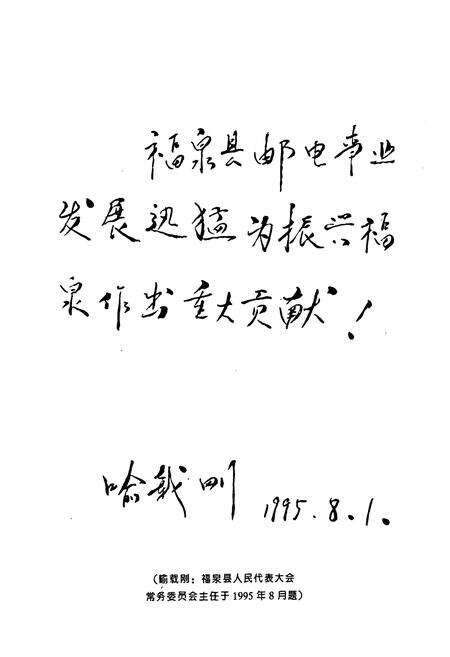 福泉县邮电事业
发展迅猛为振兴福
泉作出重大贡献！
喻载刚 1995.8.1.
（喻载刚：福泉县人民代表大会
常务委员会主任于1995年8月题）